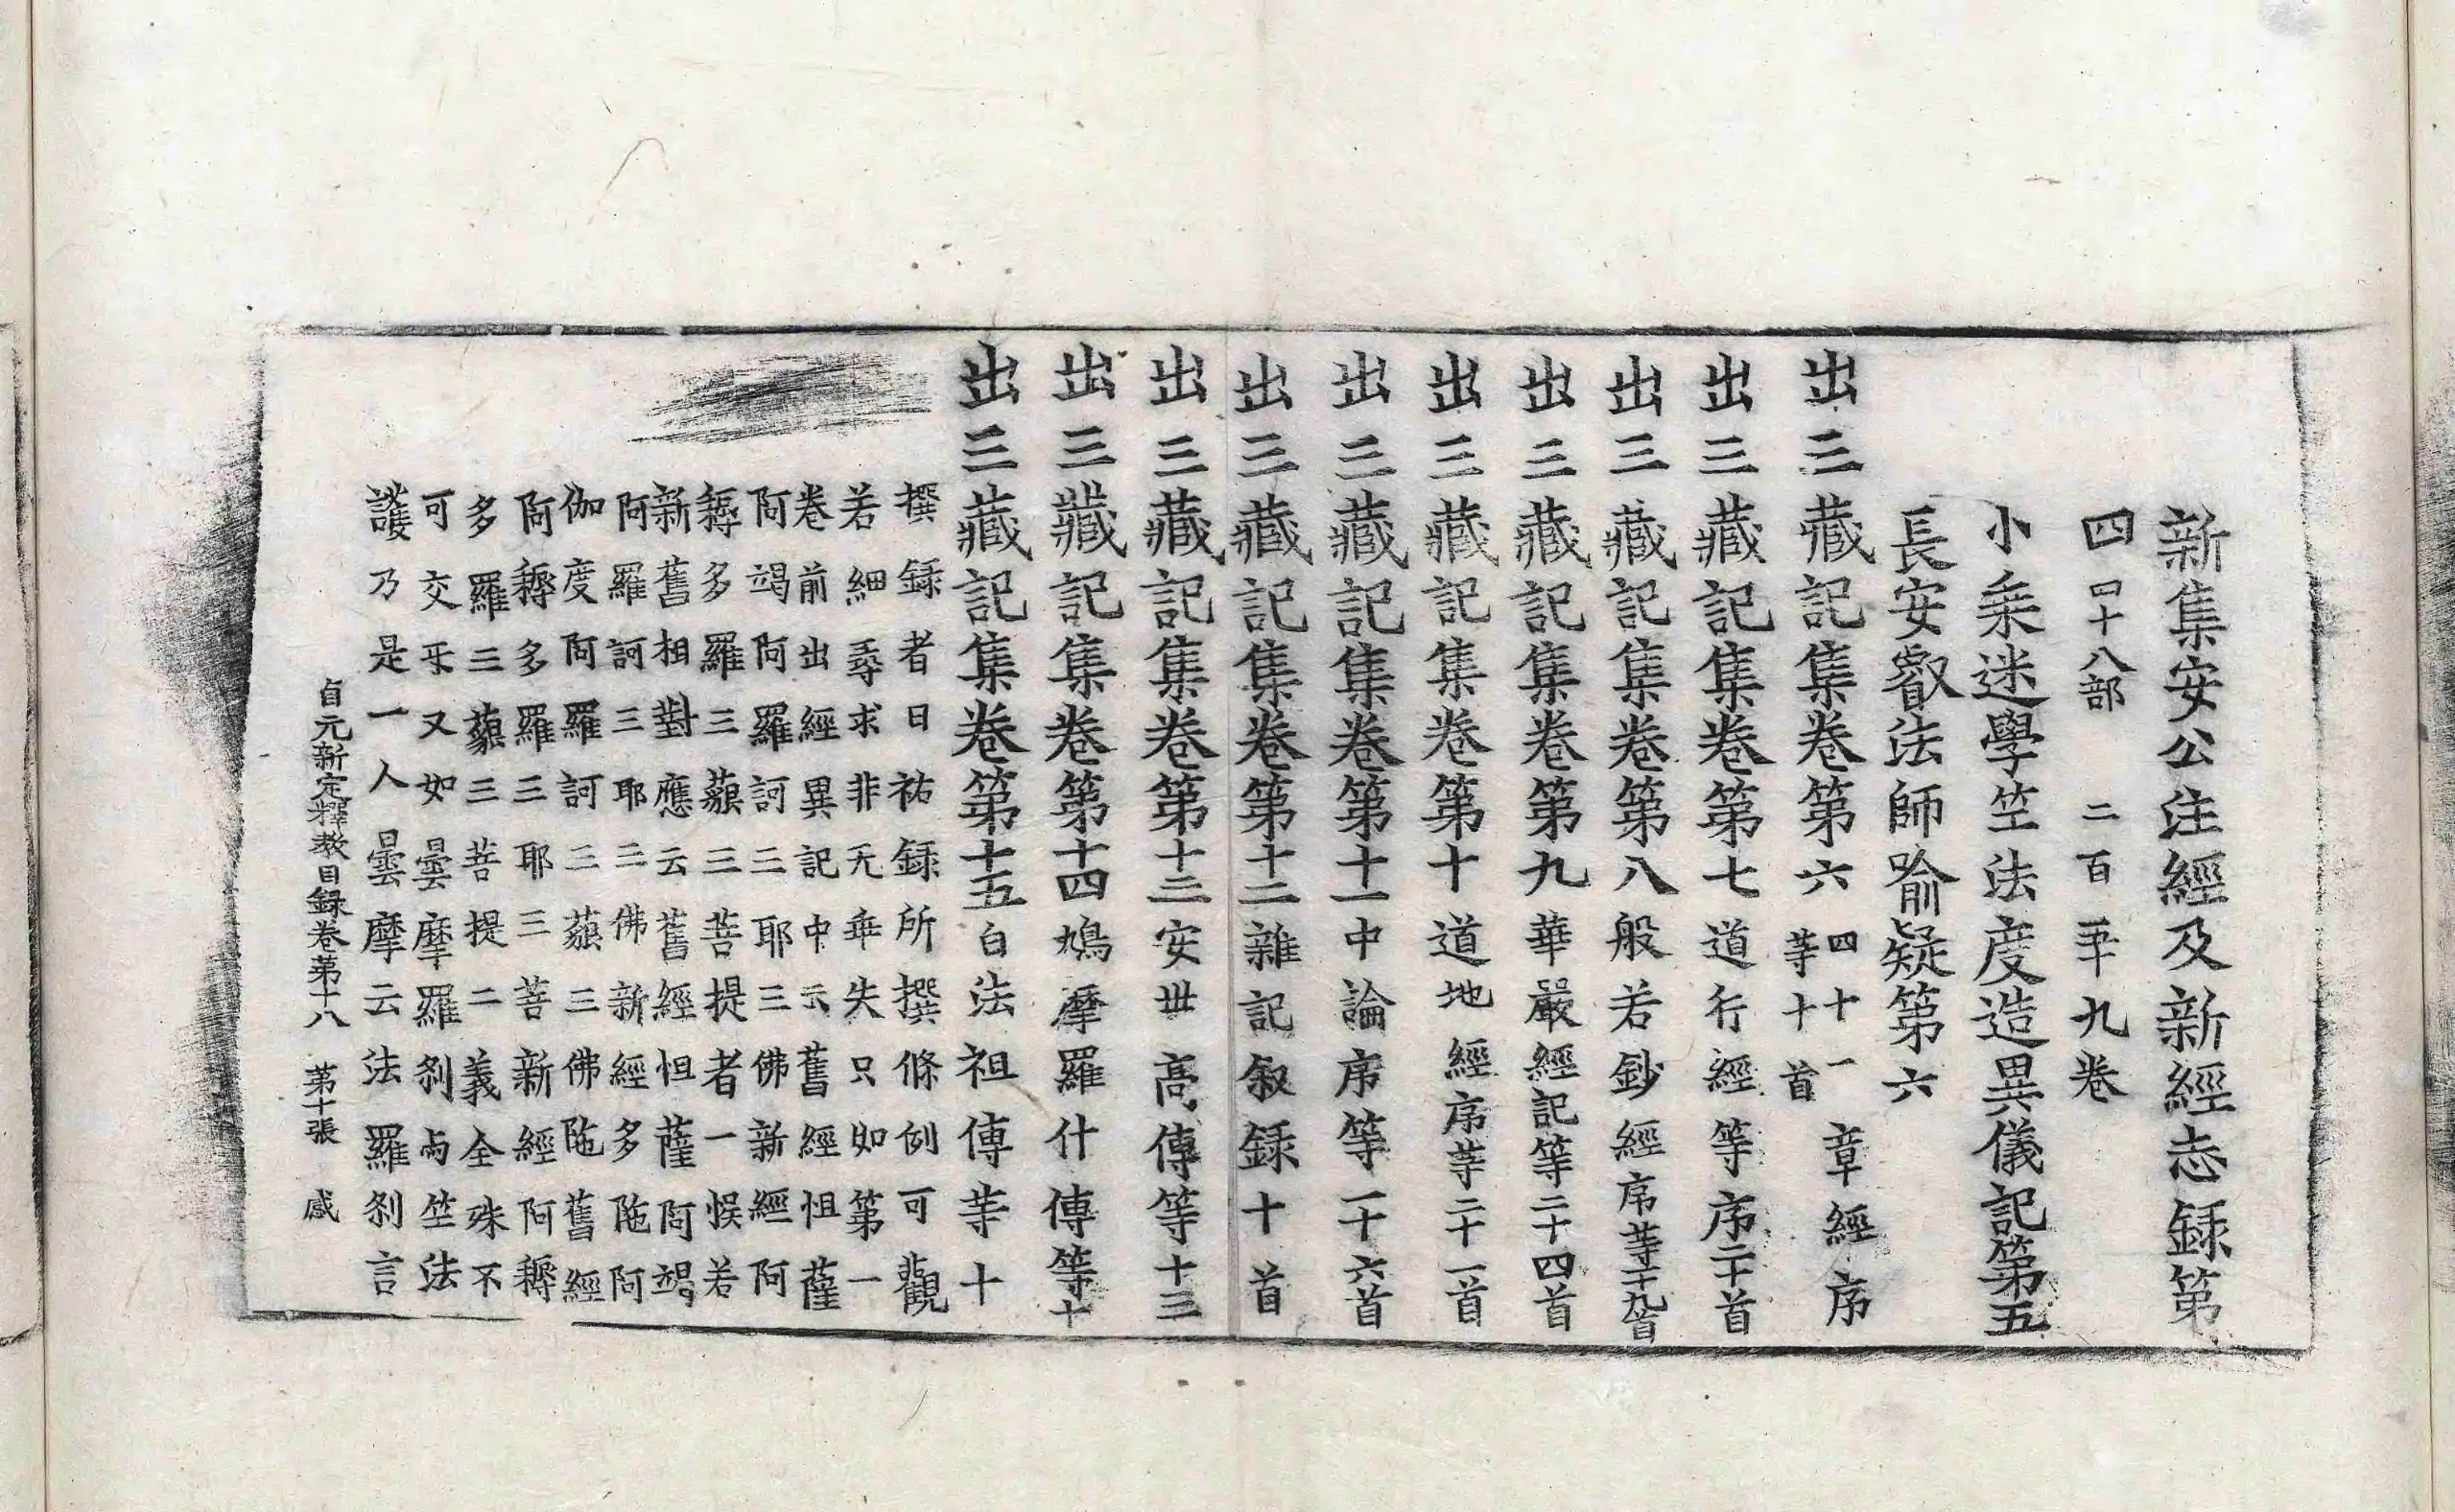 新集安公注經及新經志錄第
四四十八部 二百五十九卷
小乘迷學竺法度造異儀記第五
長安叡法師喻疑第六
出三藏記集卷第六四十一章經序等十首
出三藏記集卷第七道行經等序二十首
出三藏記集卷第八般若鈔經序等十九首
出三藏記集卷第九華嚴經記等二十四首
出三藏記集卷第十道地經序等二十一首
出三藏記集卷第十一中論序等一十六首
出三藏記集卷第十二雜記叙錄十首
出三藏記集卷第十三安世高傳等十三
出三藏記集卷第十四鳩摩羅什傳等十
出三藏記集卷第十五白法祖傳等十
撰錄者曰祐錄所撰條例可觀
若細尋求非无乖失只如第一
卷前出經異記中云舊經怛薩
阿竭阿羅訶三耶三佛新經阿
耨多羅三藐三菩提者一悞若
新舊相對應云舊經怛薩阿竭
阿羅訶三耶三佛新經多陁阿
伽度阿羅訶三藐三佛陁舊經
阿耨多羅三耶三菩新經阿耨
多羅三藐三菩提二義全殊不
可交㸦又如曇摩羅刹與竺法
護乃是一人曇摩云法羅刹言
貞元新定釋教目錄卷第十八 第十張 感